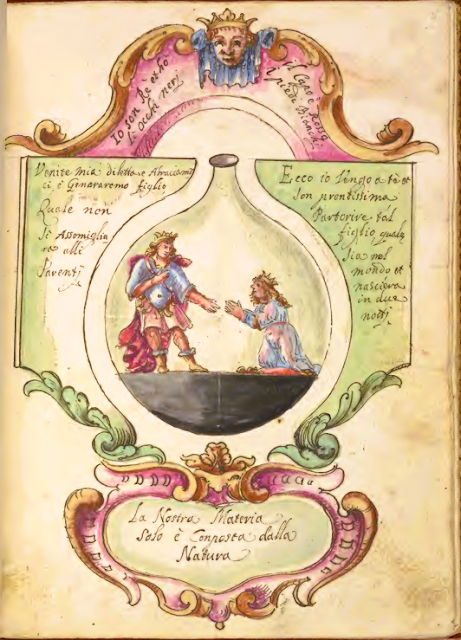 Io son Re et ho
li occhi neri
il Capo è Rosso
e di piedi Bianchi
Venite mia diletta e Abraciamo
ci è Generaremo figlio
Quale non
si Assomiglia
ra alli
Parenti
Ecco io Vengo a te et
son prontissima
Partorire tal
figlio quale
sia nel
mondo et
nascierà
in due
notti
La Nostra Materia
Solo è Conposta dalla
Natura